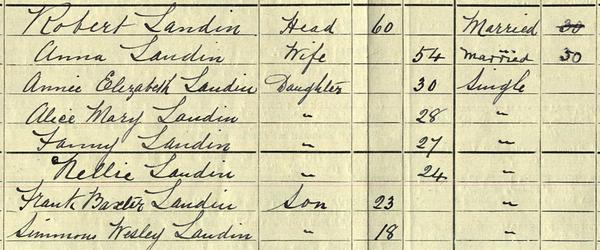 Robert Landin Head 60 Married 30
Anna Landin Wife 54 Married 30
Annie Elizabeth Landin Daughter 30 Single
Alice Mary Landin " 28 "
Fanny Landin " 27 "
Nellie Landin " 24 "
Frank Baxter Landin Son 23 "
Simmons Wesley Landin " 18 "